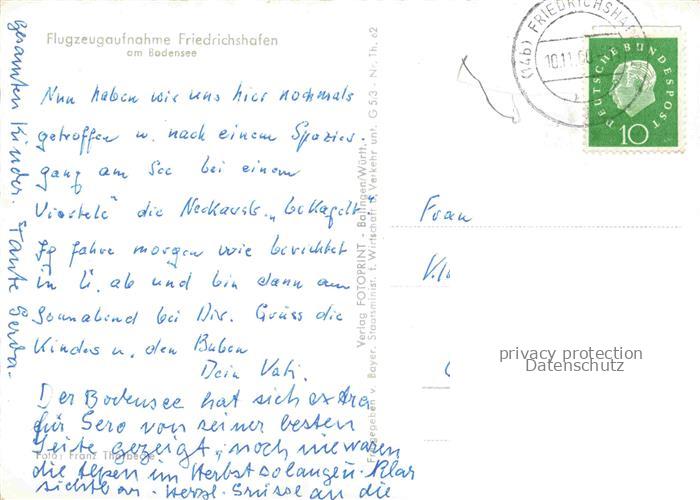 Flugzeugaufnahme Friedrichshafen
am Bodensee
Nun haben wir uns hier nochmals
getroffen u. nach einem Spazier-
gang am See bei einem
Viertele die Neckarsb. "bekakelt"
Ig fahre morgen wie berichtet
in Ü. ab und bin dann am
Sonnabend bei Dir. Grüss die
Kinder u. den Buben
Dein Vati.
Der Bodensee hat sich extra
für Gero von seiner besten
Seite gezeigt, noch nie waren
die Alpen im Herbst so lange u. klar
sichtbar. Herzl. Grüsse an die
gesamten Kinder. Tante Gerda.
Foto: Franz Thorbecke
Verlag FOTOPRINT - Balingen/Württ.
Freigegeben v. Bayer. Staatsminist. f. Wirtschaft u. Verkehr unt. G 5/3 - Nr. Th. 62
(14b) FRIEDRICHSHA
10.11.60
DEUTSCHE BUNDESPOST
10
Frau
privacy protection
Datenschutz